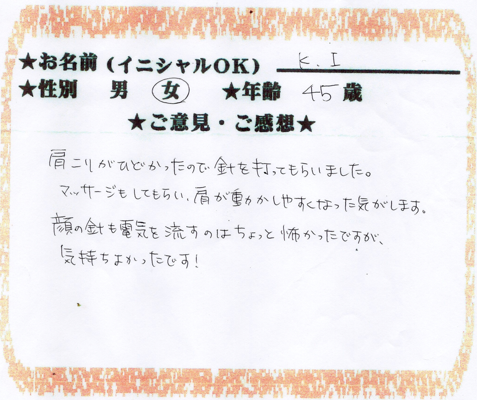 ★お名前(イニシャルOK) K.I
★性別 男 女 ★年齢 45歳
★ご意見・ご感想★
肩こりがひどかったので針を打ってもらいました。
マッサージもしてもらい、肩が動かしやすくなった気がします。
顔の針も電気を流すのはちょっと怖かったですが、
気持ちよかったです!